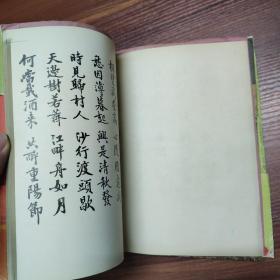 愁因薄暮起 興是清秋發
時見歸村人 沙行渡頭歇
天邊樹若薺 江畔舟如月
何當載酒來 共醉重陽節